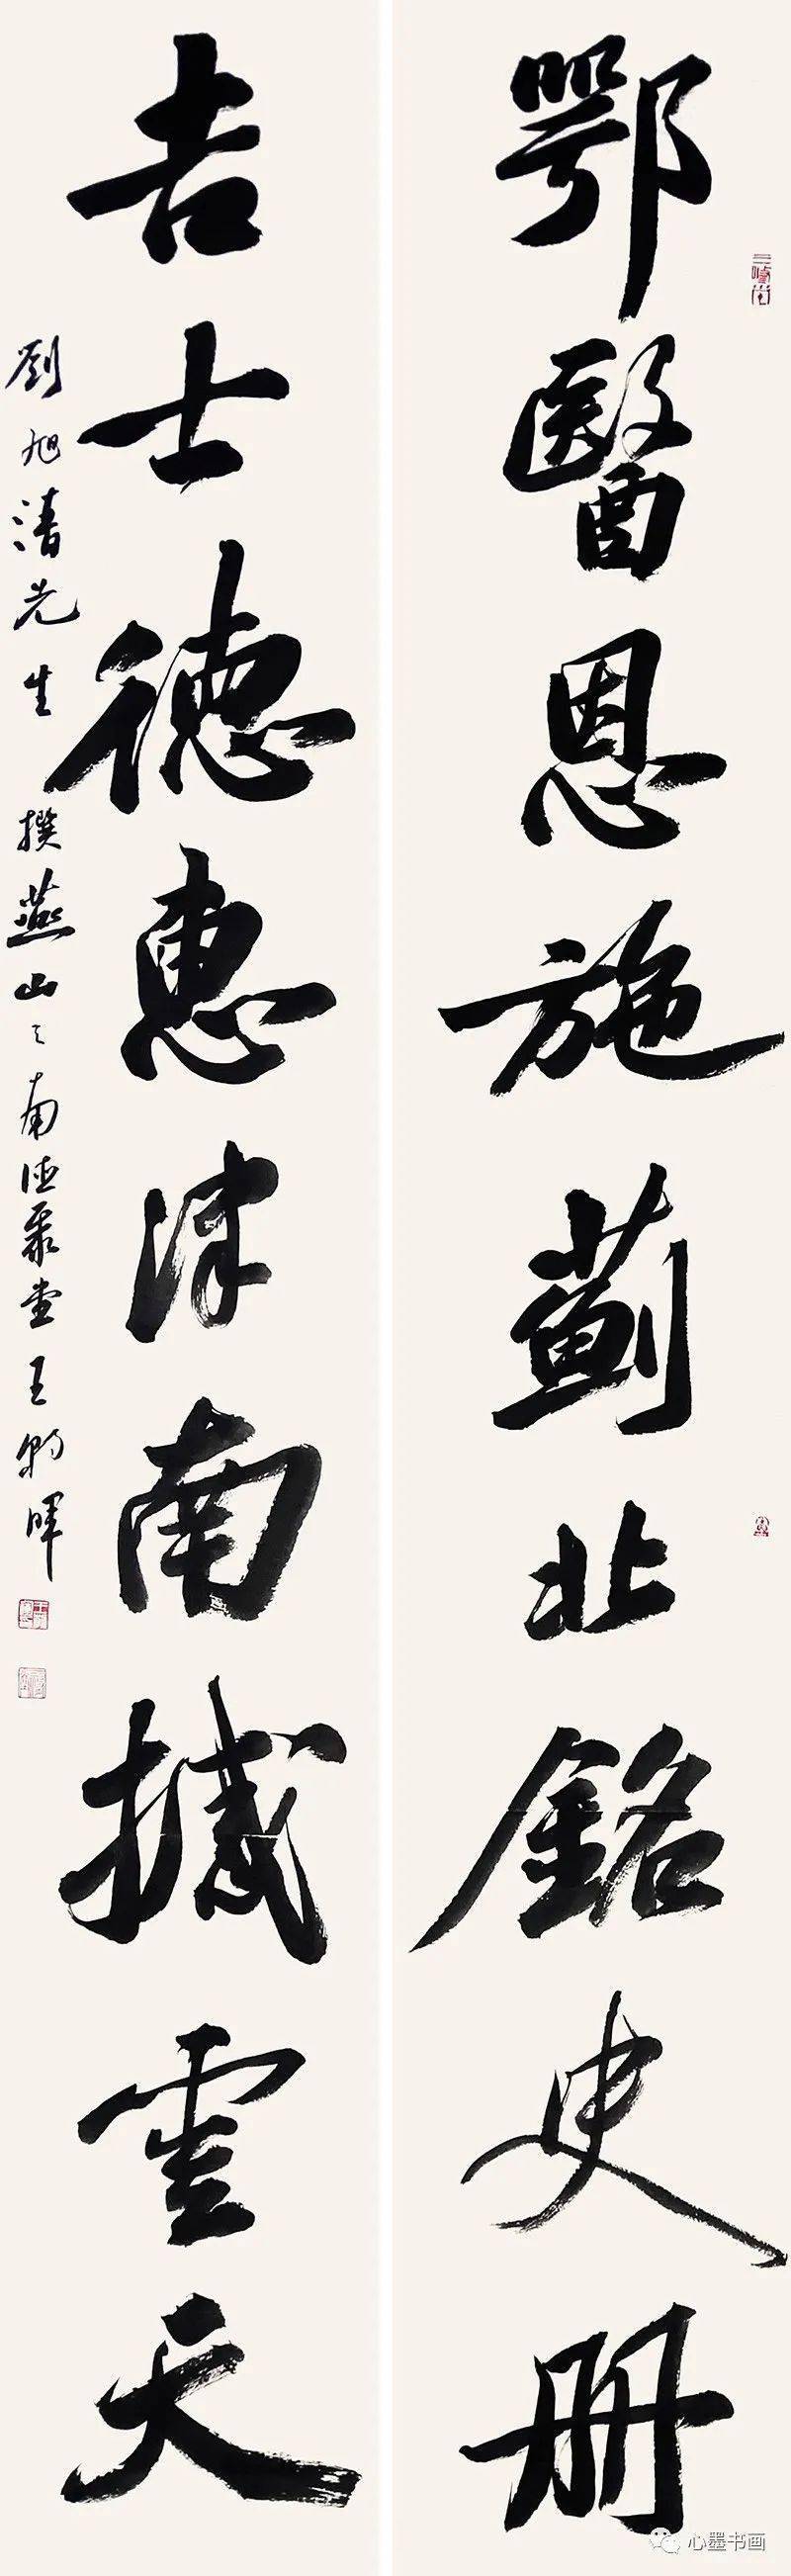 鄂醫恩施薊北銘史册
吉士德惠津南撼雲天
劉旭清先生撰燕山之南德聚堂王朝暉
心墨书画